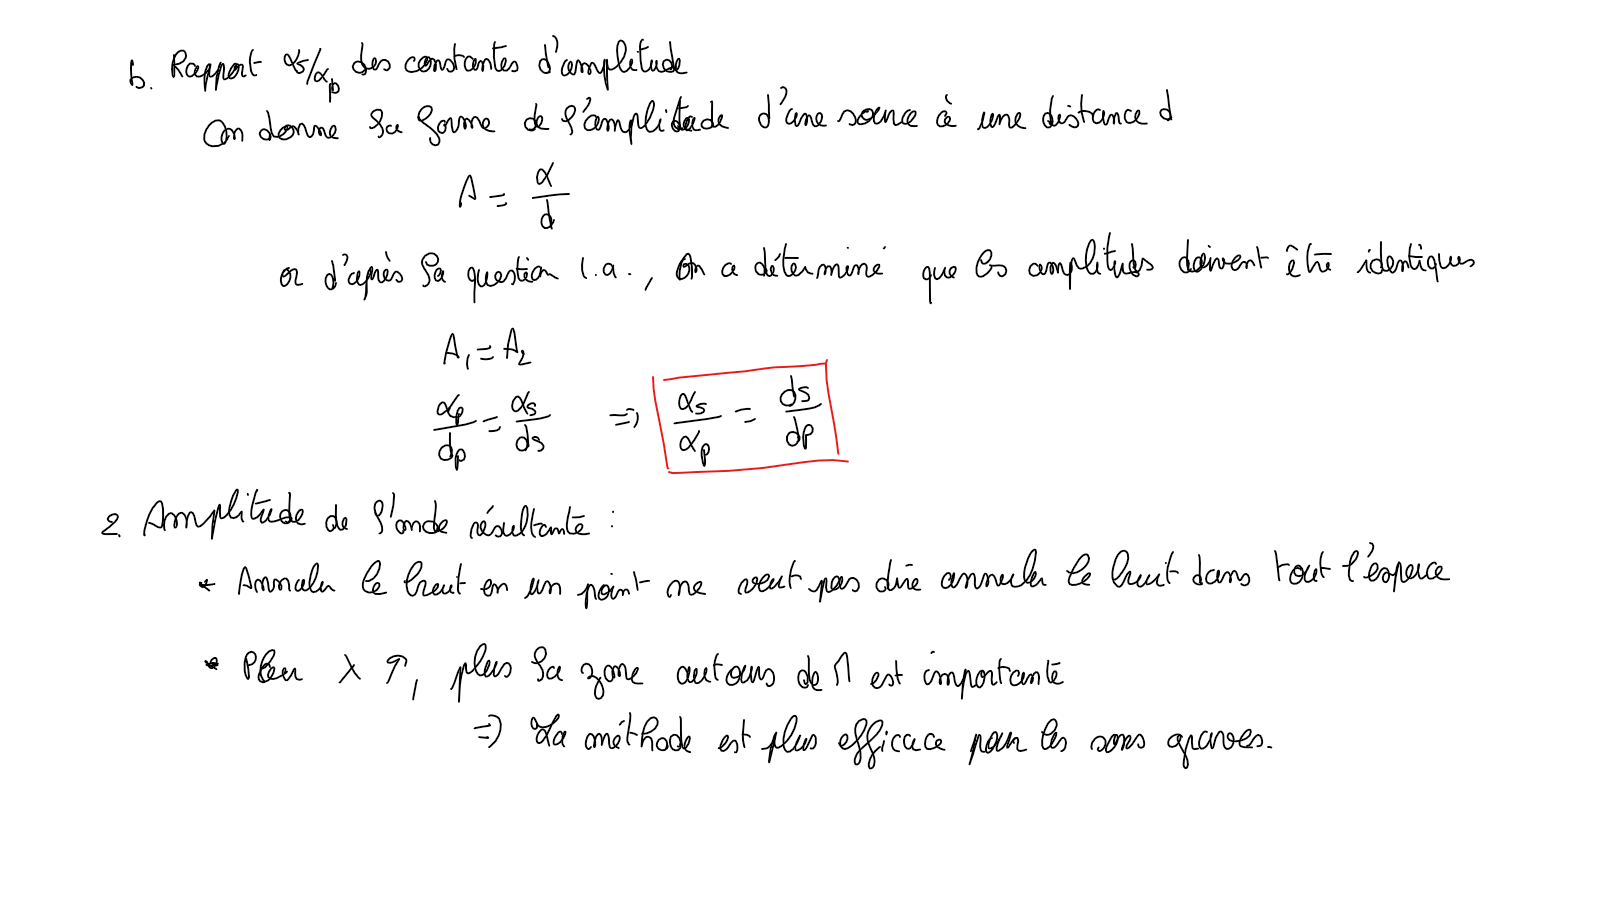 b. Rapport αs/αp des constantes d'amplitude
On donne la forme de l'amplitude d'une source à une distance d
A = α/d
or d'après la question 1.a., on a déterminé que les amplitudes doivent être identiques
A₁ = A₂
αp/dp = αs/ds => αs/αp = ds/dp
2. Amplitude de l'onde résultante :
* Annuler le bruit en un point ne veut pas dire annuler le bruit dans tout l'espace
* Plus λ ↑, plus la zone autours de M est importante
=> La méthode est plus efficace pour les sons graves.